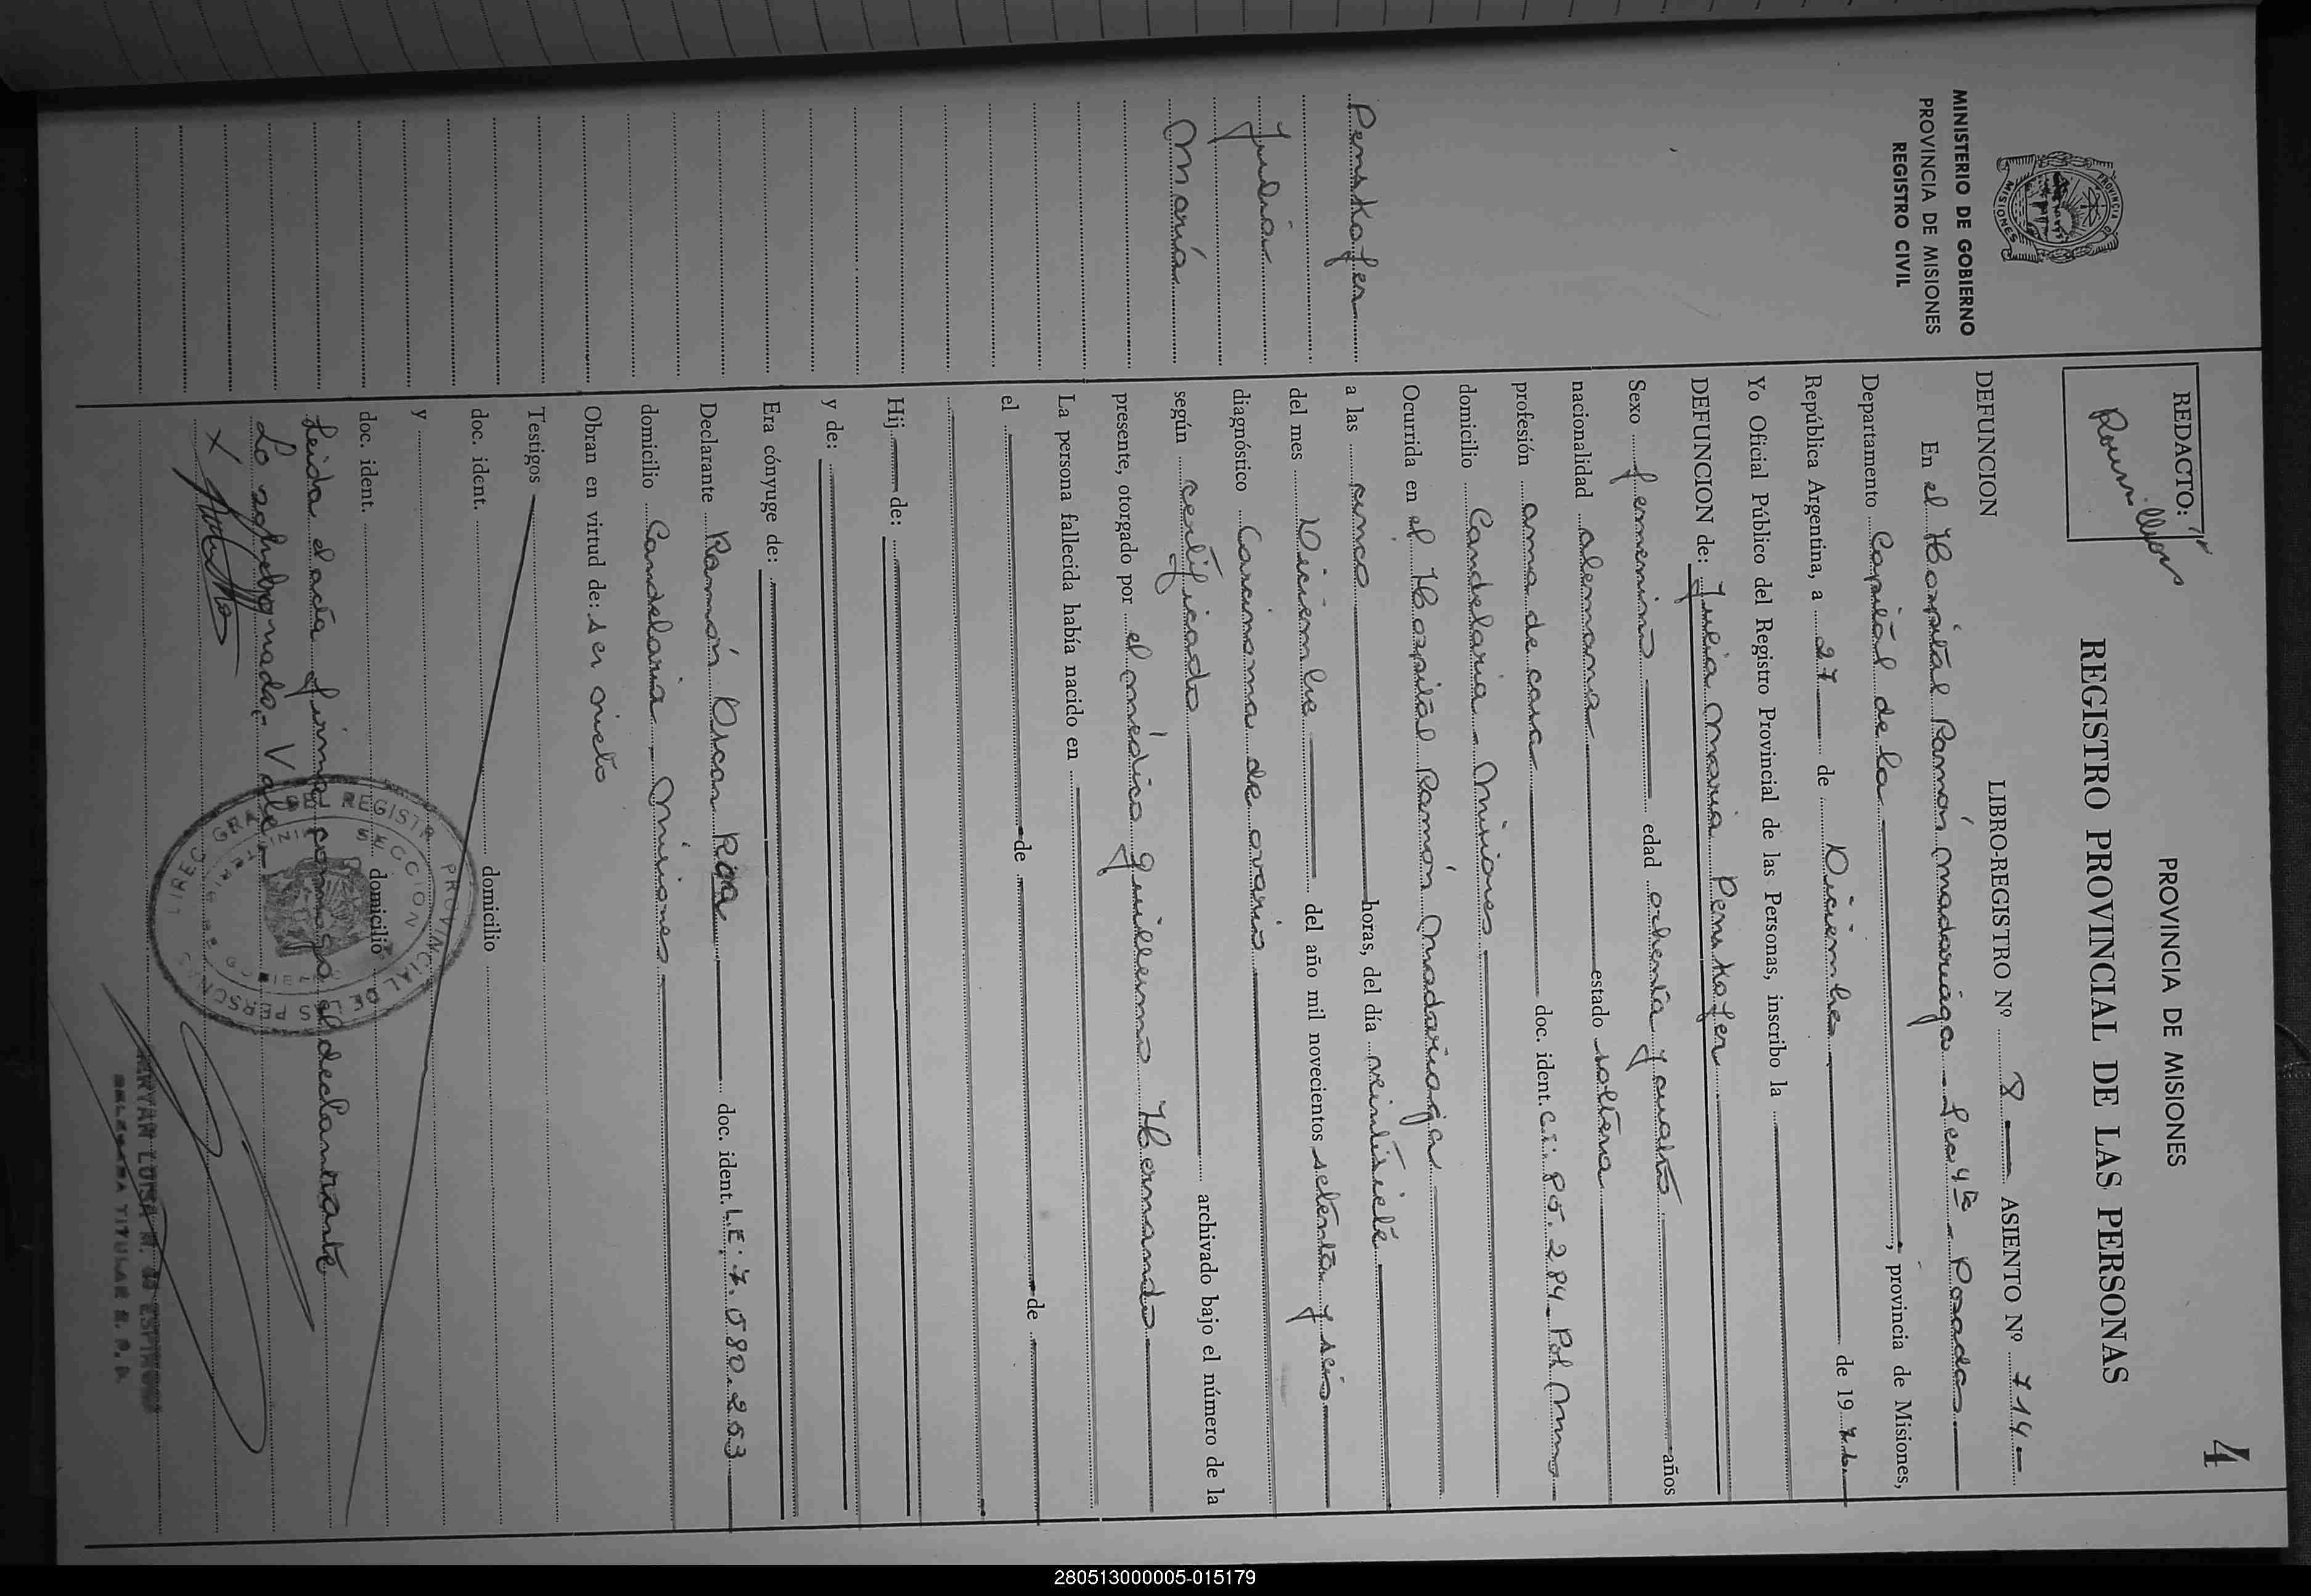 4
PROVINCIA DE MISIONES
REGISTRO PROVINCIAL DE LAS PERSONAS
REDACTO:
PROVINCIA DE MISIONES
MINISTERIO DE GOBIERNO
PROVINCIA DE MISIONES
REGISTRO CIVIL
Penskofer
Julia
María
LIBRO-REGISTRO Nº 8 ASIENTO Nº 714-
DEFUNCION
En el Hospital Ramón Madariaga - Sec 4ta - Posadas
Departamento Capital de la, provincia de Misiones,
República Argentina, a 27 de Diciembre de 1976
Yo Oficial Público del Registro Provincial de las Personas, inscribo la
DEFUNCION de: Julia María Penskofer
Sexo femenino edad ochenta y cuatro años
nacionalidad alemana estado soltera
profesión ama de casa doc. ident. C.I: 85.284- Pol Mnes
domicilio Candelaria - Misiones
Ocurrida en el Hospital Ramón Madariaga
a las cinco horas, del día veintisiete
del mes Diciembre del año mil novecientos setenta y seis
diagnóstico Carcinoma de ovario
según certificado archivado bajo el número de la
presente, otorgado por el médico Guillermo Hernando
La persona fallecida había nacido en
el de de
Hij de:
y de:
Era cónyuge de:
Declarante Ramón Oscar Roa doc. ident. L.E: 7.580.253
domicilio Candelaria - Misiones
Obran en virtud de: ser nieto
Testigos
doc. ident. domicilio
y
doc. ident. domicilio
Leida el acta firma conmigo el declarante
Lo sobreborrado - Vale -
X
280513000005-015179